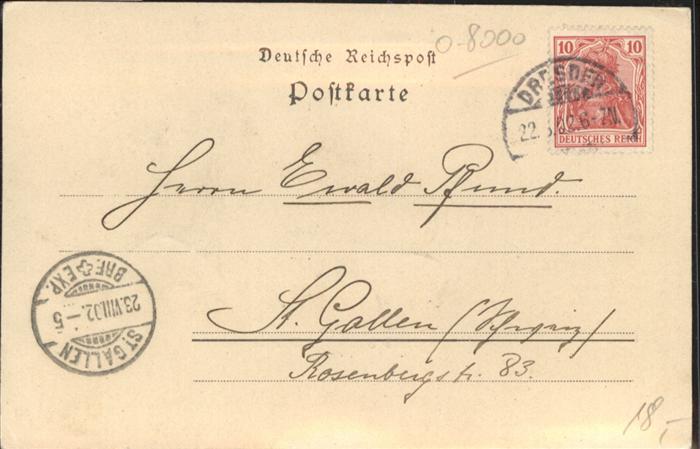 o-8000
Deutsche Reichspost
Postkarte
10 10
DEUTSCHES REICH
DRESDEN
22. .02.6-7N.
Herrn Ewald Pfund.
St. Gallen (Schweiz)
Rosenbergstr. 83.
BRF. EXP.
23.VIII.02.-5
ST. GALLEN
18,-